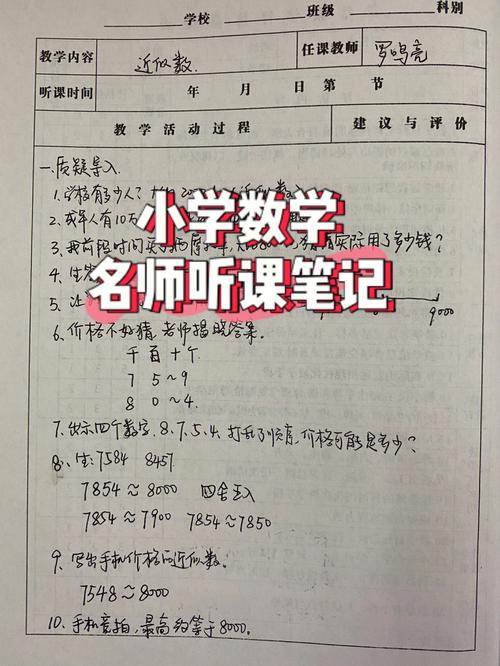 学校 班级 科别
教学内容 近似数. 任课教师 罗鸣亮
听课时间 年 月 日 第 节
教学活动过程 建议与评价
一.质疑导入.
1.学校有多少人?
2.
小学数学
3.我前段时间买了 实际用了多少钱?
4.
名师听课笔记
5. 9000
6.价格不好猜,老师揭晓答案。
千百十个
7 5~9
8 0~4
7.出示四个数字.8.7.5.4.打乱了顺序,价格可能是多少?
8.生:7584 8457
7854≈8000 四舍五入
7854≈7900 7854≈7850
9.写出手机价格的近似数。
7548≈8000
10.手机竞拍,最高约等于8000。